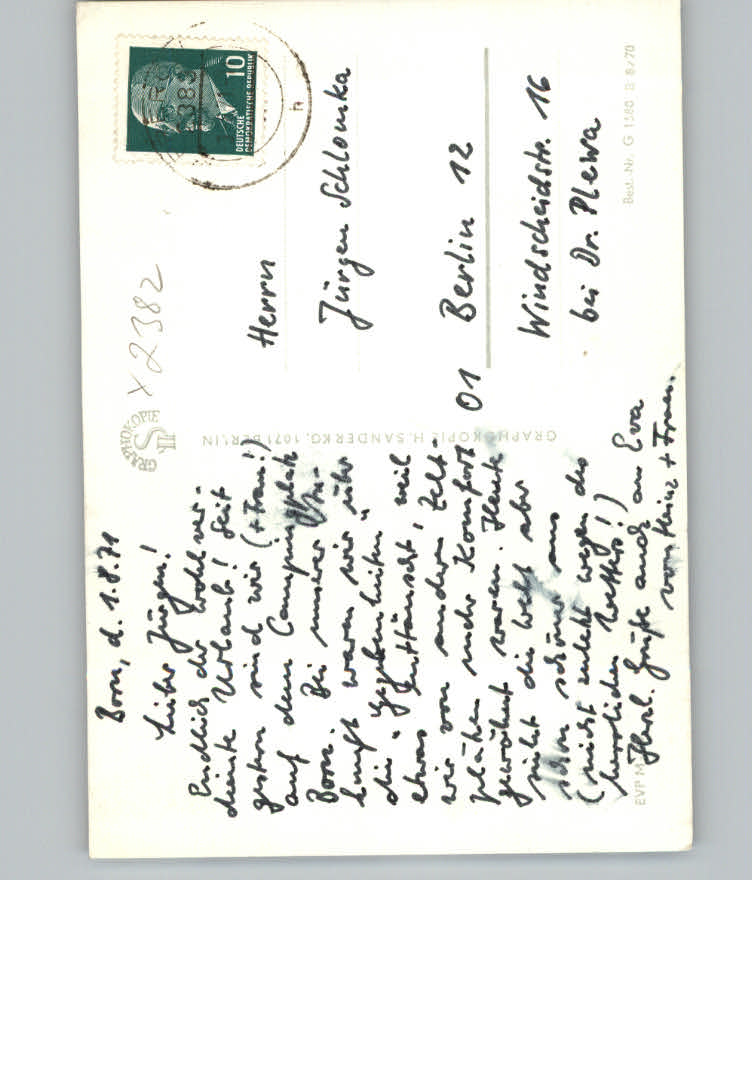 Born, d. 1.8.71
Lieber Jürgen!
Endlich der wohlver-
diente Urlaub! Seit
gestern sind wir (+ Frau!)
auf dem Campingplatz
Born. Bei unserer An-
kunft waren wir über
die „Gegebenheiten"
etwas enttäuscht, weil
wir von anderen Zelt-
plätzen mehr Komfort
gewöhnt waren. Heute
sieht die Welt aber
schon schöner aus
(nicht zuletzt wegen des
herrlichen Wetters!)
Herzl. Grüße auch an Eva
von Heinz + Frau.
GRAPHOKOPIE
GRAPHOKOPIE H. SANDER KG. 1071 BERLIN
EVP M
X 2382
DEUTSCHE
DEMOKRATISCHE REPUBLIK
10
h
Herrn
Jürgen Schlomka
01 Berlin 12
Windscheidstr. 16
bei Dr. Plewa
Best.-Nr. G 1580 B 8/70